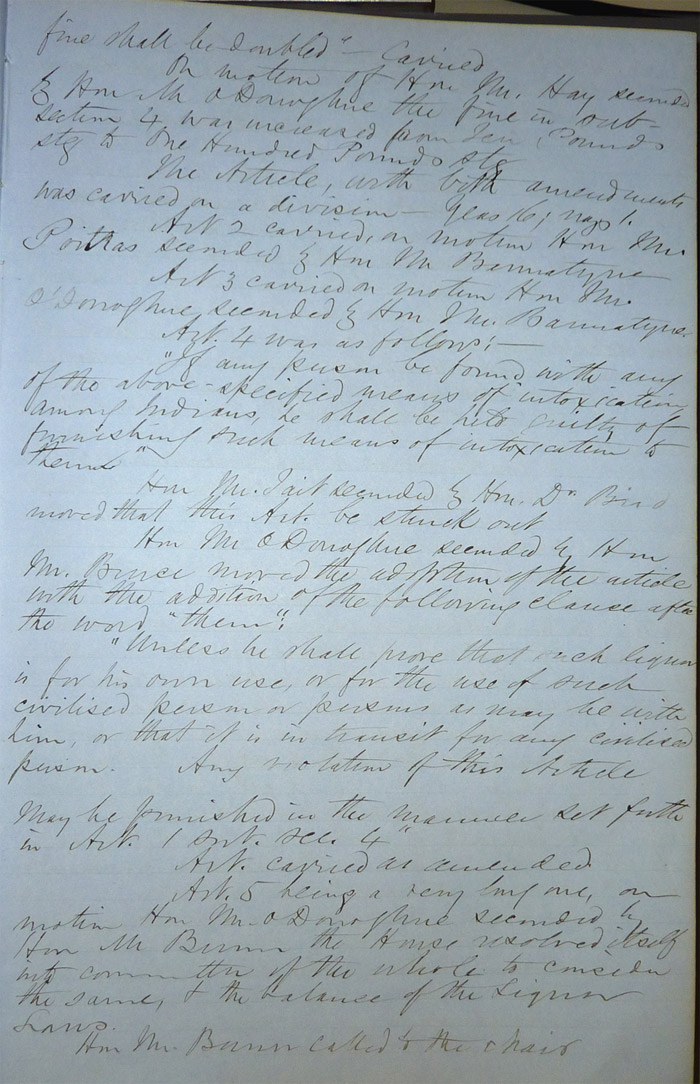 fine shall be doubled" — Carried
On motion of Hon Mr. Hay seconded
by Hon Mr O'Donoghue the fine in sub-
section 4 was increased from Ten Pounds
stg to One Hundred Pounds stg
The Article, with both amendments
was carried on a division — Yeas 16; nays 1.
Art 2 carried, on motion Hon Mr.
Poitras seconded by Hon Mr Bannatyne
Art 3 carried on motion Hon Mr.
O'Donoghue, seconded by Hon Mr. Bannatyne.
Art. 4 was as follows:—
"If any person be found with any
of the above-specified means of intoxication
among Indians, he shall be held guilty of
furnishing such means of intoxication to
them"
Hon Mr. Tait seconded by Hon. Dr Bird
moved that this Art. be struck out
Hon Mr O'Donoghue seconded by Hon
Mr. Bruce moved the adoption of the article
with the addition of the following clause after
the word "them":
"Unless he shall prove that such liquor
is for his own use, or for the use of such
civilised person or persons as may be with
him, or that it is in transit for any civilised
person. Any violation of this Article
may be punished in the manner set forth
in Art. 1 sec. 4"
Art. carried as amended
Art. 5 being a very long one, on
motion Hon Mr. O'Donoghue seconded by
Hon Mr Bunn the House resolved itself
into committee of the whole to consider
the same, & the balance of the Liquor
Laws.
Hon Mr. Bunn called to the chair